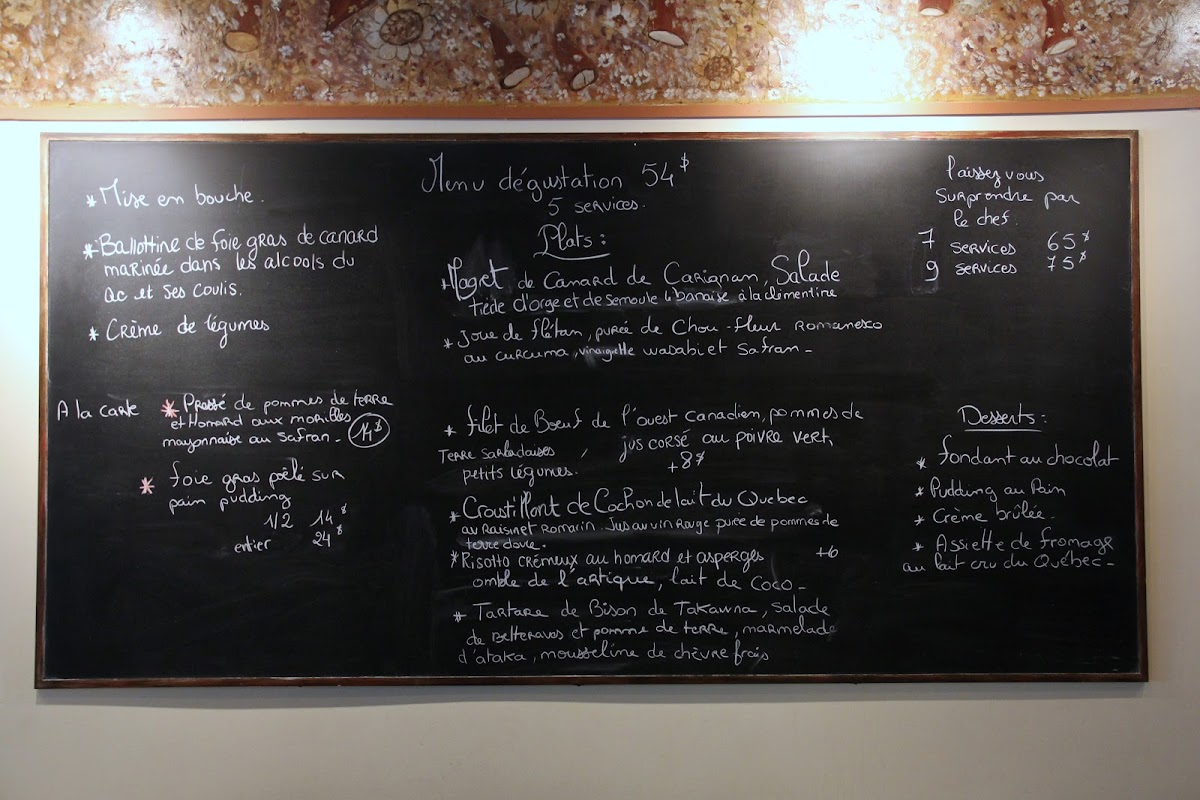 * Mise en bouche.
* Ballottine de foie gras de canard
marinée dans les alcools du
Qc et ses coulis.
* Crème de légumes
A la carte
* Pressé de pommes de terre
et Homard aux morilles
mayonnaise au Safran_ 14$
* foie gras poêlé sur
pain pudding
1/2 14$
entier 24$
Menu dégustation 54$
5 services.
Plats:
* Magret de Canard de Carignan, Salade
tiède d'orge et de semoule libanaise à la clémentine
* Joue de flétan, purée de Chou-fleur romanesco
au curcuma, vinaigrette wasabi et Safran_
* filet de Boeuf de l'ouest canadien, pommes de
Terre Sarladaises, jus corsé au poivre vert,
petits légumes. +8$
* Cousti'Mont de Cochon de lait du Quebec
au Raisin et Romarin. Jus au vin Rouge purée de pommes de
terre douce.
* Risotto crémeux au homard et asperges +6
omble de l'artique, lait de Coco_
* Tartare de Bison de Takawna, salade
de Betteraves et pomme de terre, marmelade
d'ataka, mousseline de chèvre frais
laissez vous
surprendre par
le chef.
7 services 65$
9 services 75$
Desserts:
* fondant au chocolat
* Pudding au Pain
* Crème brûlée.
* Assiette de fromage
au lait cru du Québec_